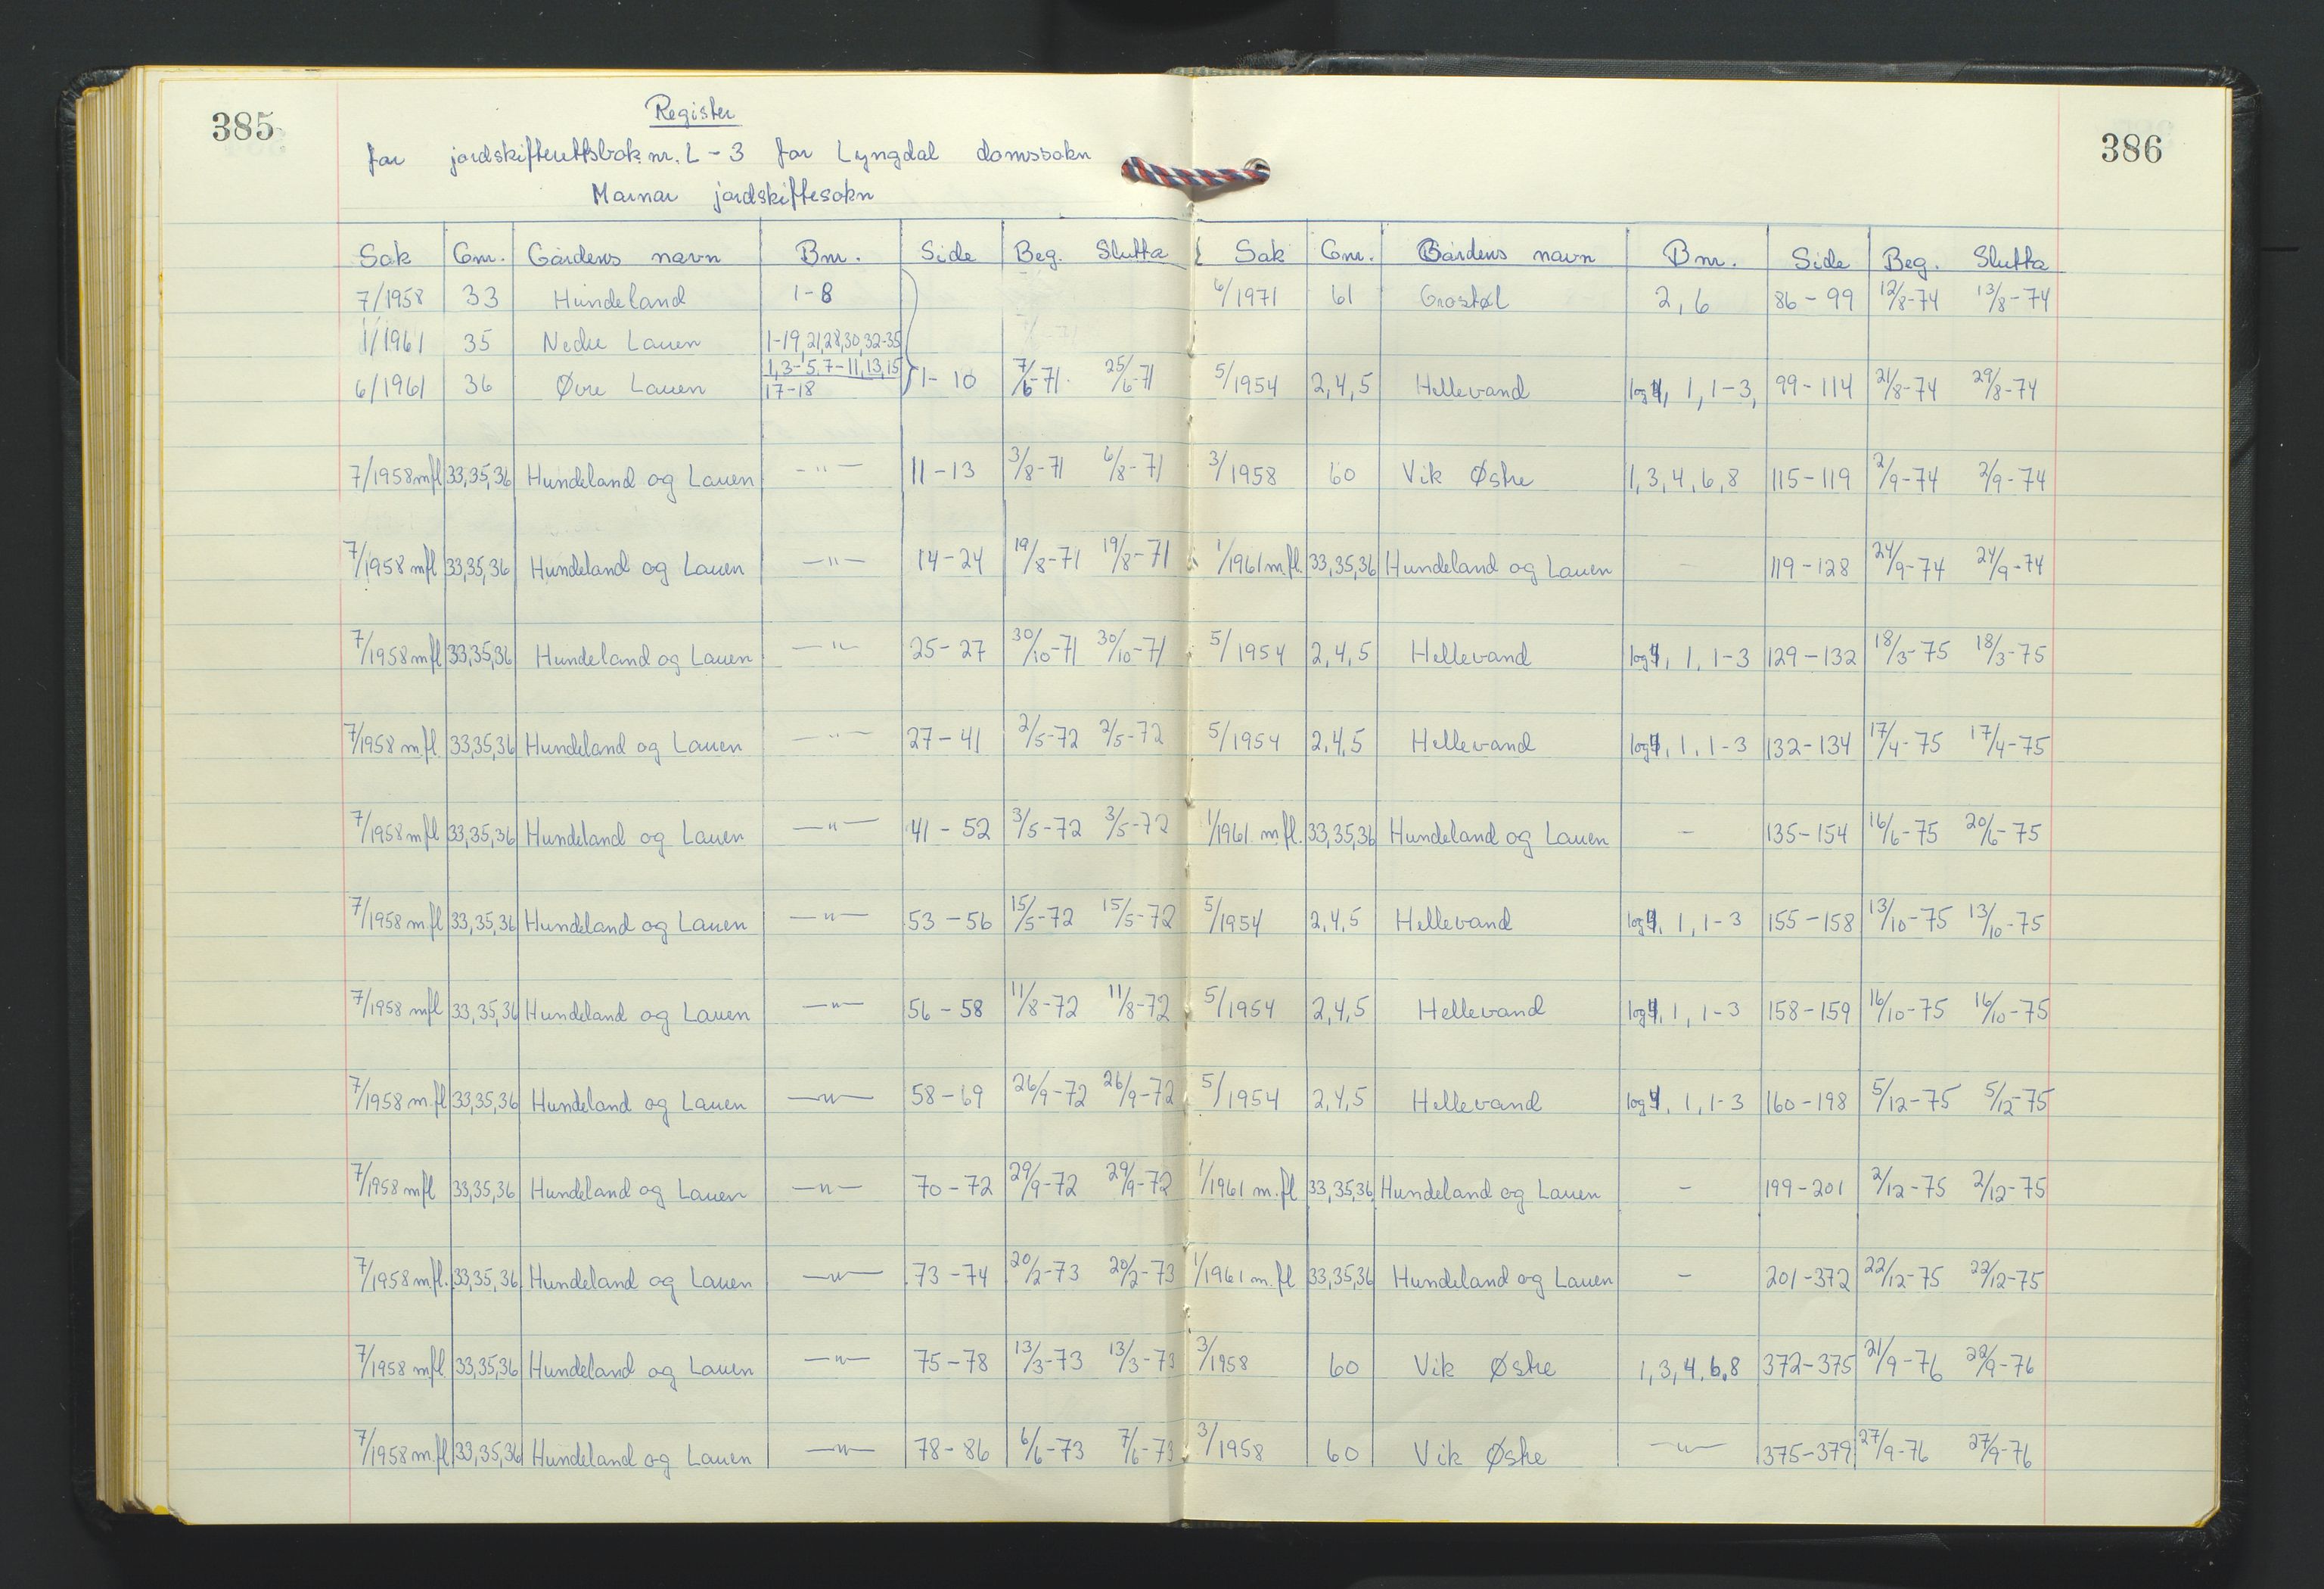 385
Register
for jordskifterettsbok nr. L - 3 for Lyngdal domssokn
Marnar jordskiftesokn
Sak Gnr. Gårdens navn Bnr. Side Beg. Slutta
7/1958 33 Hundeland 1-8
1/1961 35 Nedre Lauen 1-19,21,28,30,32-35
6/1961 36 Øvre Lauen 1,3-5,7-11,13,15 17-18 1-10 7/6-71. 25/6-71
7/1958 mfl 33,35,36 Hundeland og Lauen -"- 11-13 3/8-71 6/8-71
7/1958 mfl 33,35,36 Hundeland og Lauen -"- 14-24 19/8-71 19/8-71
7/1958 mfl 33,35,36 Hundeland og Lauen -"- 25-27 30/10-71 30/10-71
7/1958 m.fl. 33,35,36 Hundeland og Lauen -"- 27-41 2/5-72 2/5-72
7/1958 mfl 33,35,36 Hundeland og Lauen -"- 41-52 3/5-72 3/5-72
7/1958 m.fl 33,35,36 Hundeland og Lauen -"- 53-56 15/5-72 15/5-72
7/1958 mfl 33,35,36 Hundeland og Lauen -"- 56-58 11/8-72 11/8-72
7/1958 m.fl 33,35,36 Hundeland og Lauen -"- 58-69 26/9-72 26/9-72
7/1958 mfl 33,35,36 Hundeland og Lauen -"- 70-72 29/9-72 29/9-72
7/1958 m.fl. 33,35,36 Hundeland og Lauen -"- 73-74 20/2-73 20/2-73
7/1958 mfl. 33,35,36 Hundeland og Lauen -"- 75-78 13/3-73 13/3-73
7/1958 m.fl 33,35,36 Hundeland og Lauen -"- 78-86 6/6-73 7/6-73
386
Sak Gnr. Gårdens navn Bnr. Side Beg. Slutta
6/1971 61 Grostøl 2,6 86-99 12/8-74 13/8-74
5/1954 2,4,5 Hellevand 1og4, 1, 1-3, 99-114 21/8-74 29/8-74
3/1958 60 Vik Østre 1,3,4,6,8 115-119 2/9-74 2/9-74
1/1961 m.fl. 33,35,36 Hundeland og Lauen - 119-128 24/9-74 24/9-74
5/1954 2,4,5 Hellevand 1og4, 1, 1-3 129-132 18/3-75 18/3-75
5/1954 2,4,5 Hellevand 1og4, 1, 1-3 132-134 17/4-75 17/4-75
1/1961 m.fl. 33,35,36 Hundeland og Lauen - 135-154 16/6-75 20/6-75
5/1954 2,4,5 Hellevand 1og4, 1, 1-3 155-158 13/10-75 13/10-75
5/1954 2,4,5 Hellevand 1og4, 1, 1-3 158-159 16/10-75 16/10-75
5/1954 2,4,5 Hellevand 1og4, 1, 1-3 160-198 5/12-75 5/12-75
1/1961 m.fl 33,35,36 Hundeland og Lauen - 199-201 2/12-75 2/12-75
1/1961 m.fl 33,35,36 Hundeland og Lauen - 201-372 22/12-75 22/12-75
3/1958 60 Vik Østre 1,3,4,6,8 372-375 21/9-76 22/9-76
3/1958 60 Vik Østre -"- 375-379 27/9-76 27/9-76